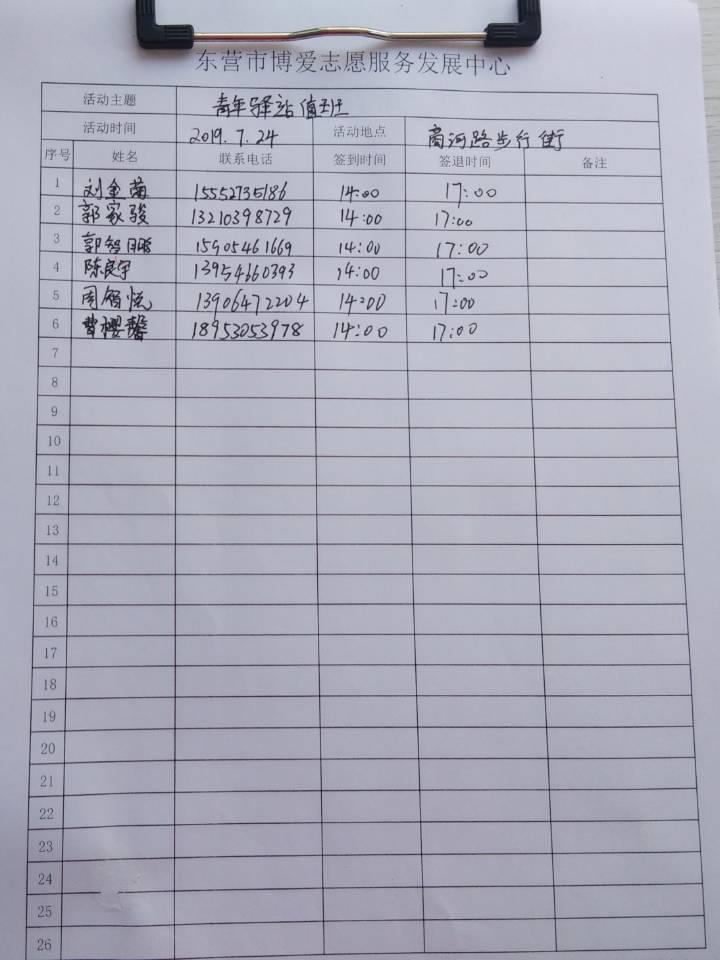 东营市博爱志愿服务发展中心
活动主题 青年驿站值班
活动时间 2019.7.24 活动地点 商河路步行街
序号 姓名 联系电话 签到时间 签退时间 备注
1 刘金菊 15552735186 14:00 17:00
2 郭家骏 13210398729 14:00 17:00
3 郭智鹏 15905461669 14:00 17:00
4 陈良宇 13954660393 14:00 17:00
5 周 悦 13906472204 14:00 17:00
6 曹樱馨 18953053978 14:00 17:00
7
8
9
10
11
12
13
14
15
16
17
18
19
20
21
22
23
24
25
26